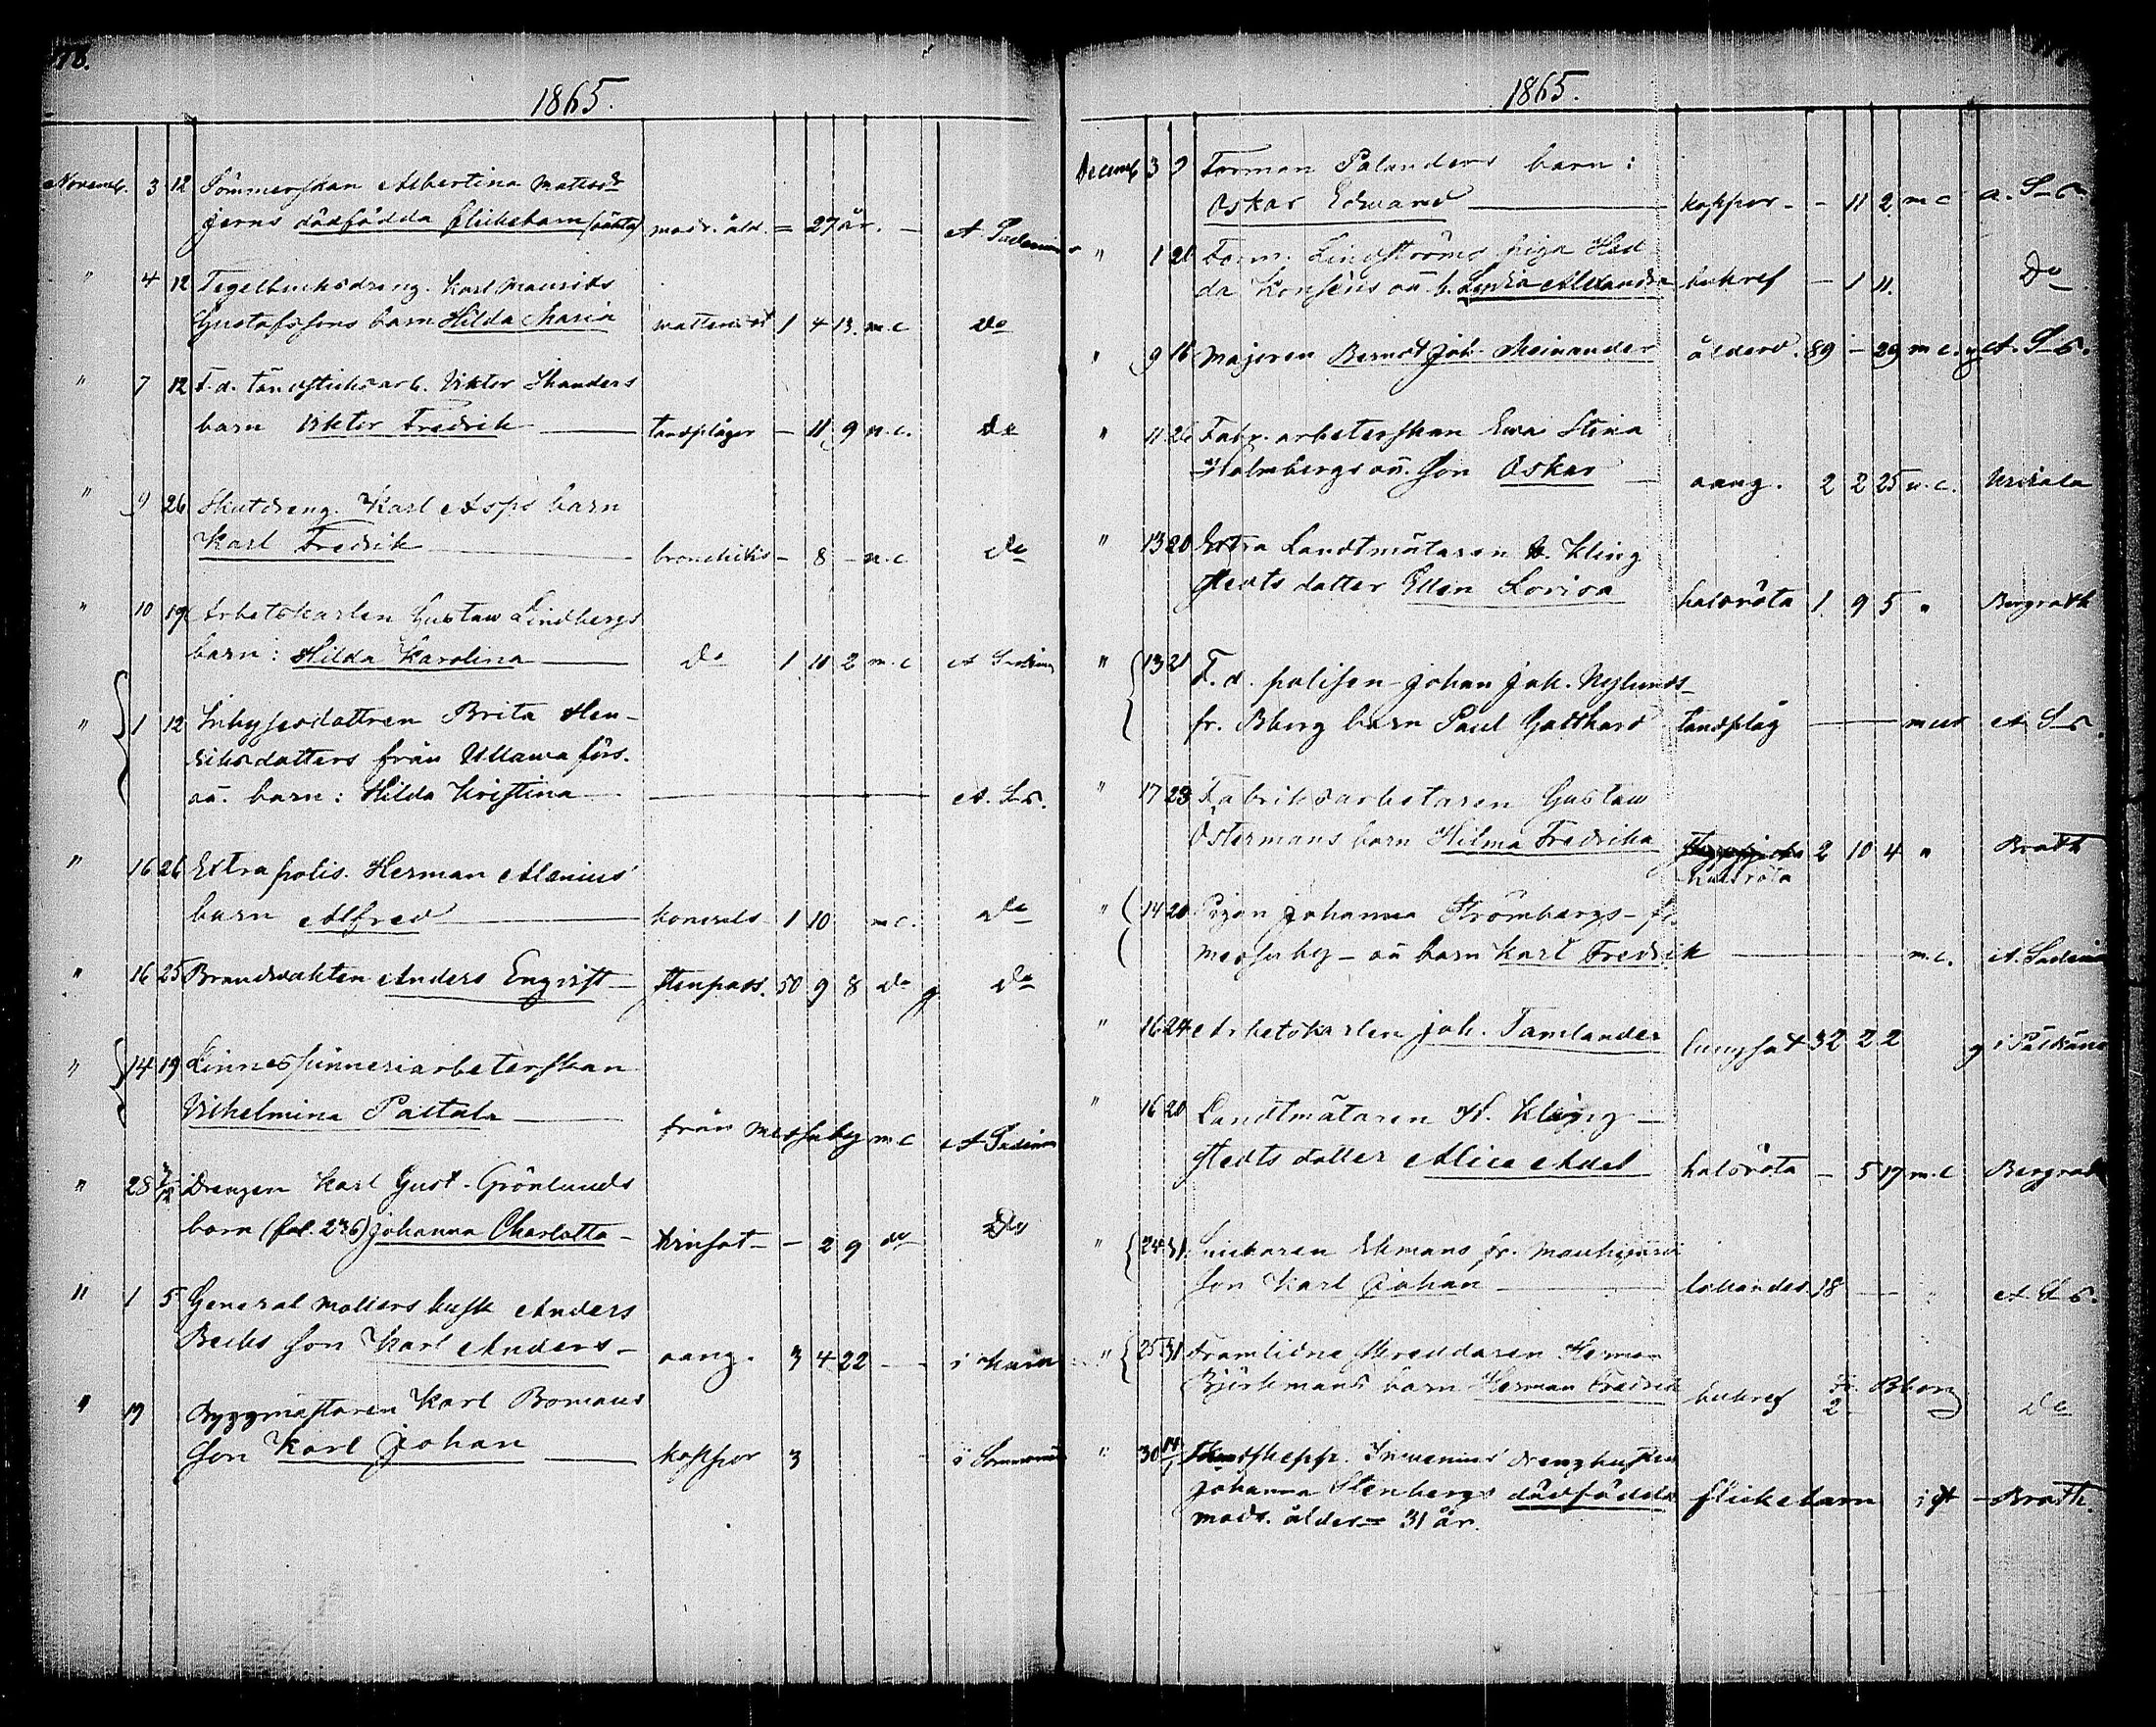 118.
1865.
Novemb. 3 12 Sömmerskan Albertina Matts
jerns dödfödda flickebarn (oäkta) modr. åld. = 27 år. — A. Sadenius
" 4 12 Tegelbruksdräng. Karl Maurits
Gustafssons barn Hilda Maria 1 4 13. m.c Do
" 7 12 F. d. tändsticksarb. Viktor Skanders
barn Viktor Fredrik — tandplågor — 11 9 m.c. Do
" 9 26 Skutdreng. Karl Asps barn
Karl Fredrik — bronchitis — 8 — m.c Do
" 10 19 Arbetskarlen Gustaw Lindbergs
barn: Hilda Karolina — Do 1 10 2 m.c A Sadenius
" 1 12 Inhysesdottren Brita Hen-
riksdotters från Ullawa förs.
oä. barn: Hilda Kristina — A. S-s.
" 16 26 Extra polis. Herman Alenius'
barn Alfred — 1 10 m.c. Do
" 16 25 Brandvakten Anders Engrist — stenpass. 50 9 8 Do g Do
" 14 19 Linnespinneriarbeterskan
Vilhelmina Paltala — från Messuby m.c A Sadenius
" 28 3/12 Drengen Karl Gust. Grönlunds
barn (fol. 236) Johanna Charlotta — — 2 9 do Do
" 1 5 General Mollers kusk Anders
Becks son Karl Anders — aang. 3 4 22 — i Karu
" 19 Byggmästaren Karl Bomans
son Karl Johan — koppor 3 i Sommarnäs
1865.
Decemb 3 Forman Palanders barn:
Oskar Edward — koppor — — 11 2 m c a. S-s
" 1 20 Form. Lindströms piga Hed-
da Konséns oä b. Alexandra bukref — 1 11. Do
" 9 16 Majoren Berndt Joh. Meinander ålderd. 89 — 29 m.c. g A. S-s.
" 11 26 Fabr. arbeterskan Ewa Stina
Holmbergs oä. son Oskar — aang. 2 2 25 m.c. Urdiala
" 13 20 Extra Landtmätaren H. Kling
stedts dotter Ellen Lovisa halsröta 1. 9 5 " Bergroth
" 13 21 F. d. polisen Johan Joh. Nylunds-
fr. Bberg barn Paul Gotthard tandplåg — med A S-s.
" 17 23 Fabriksarbetaren Gustaw
Östermans barn Hilma Fredrika 2 10 4 " Broth
halsröta
" 14 20 Pigan Johanna Strömbergs — fr.
Messuby — oä barn Karl Fredrik — m.c. A. Sadenius
" 16 24 Arbetskarlen Joh. Tamlander lungsot 32 2 2 g i Pälkäne
" 16 20 Landtmätaren H. Kling —
stedts dotter Alice Adel halsröta — 5 17 m.c Bergroth
" 24 31. Snickaren Ekmans fr.
son Karl Johan — 18 — " A S-s.
" 25 31 Framlidne skreddaren Herman
Björkmans barn Herman Fredrik bukref fr. Bborg
2. Do
" 30 14/1 Inwenius' drenghustru
Johanna Stenbergs dödfödda flickebarn — Broth.
modr. ålder = 31 år.